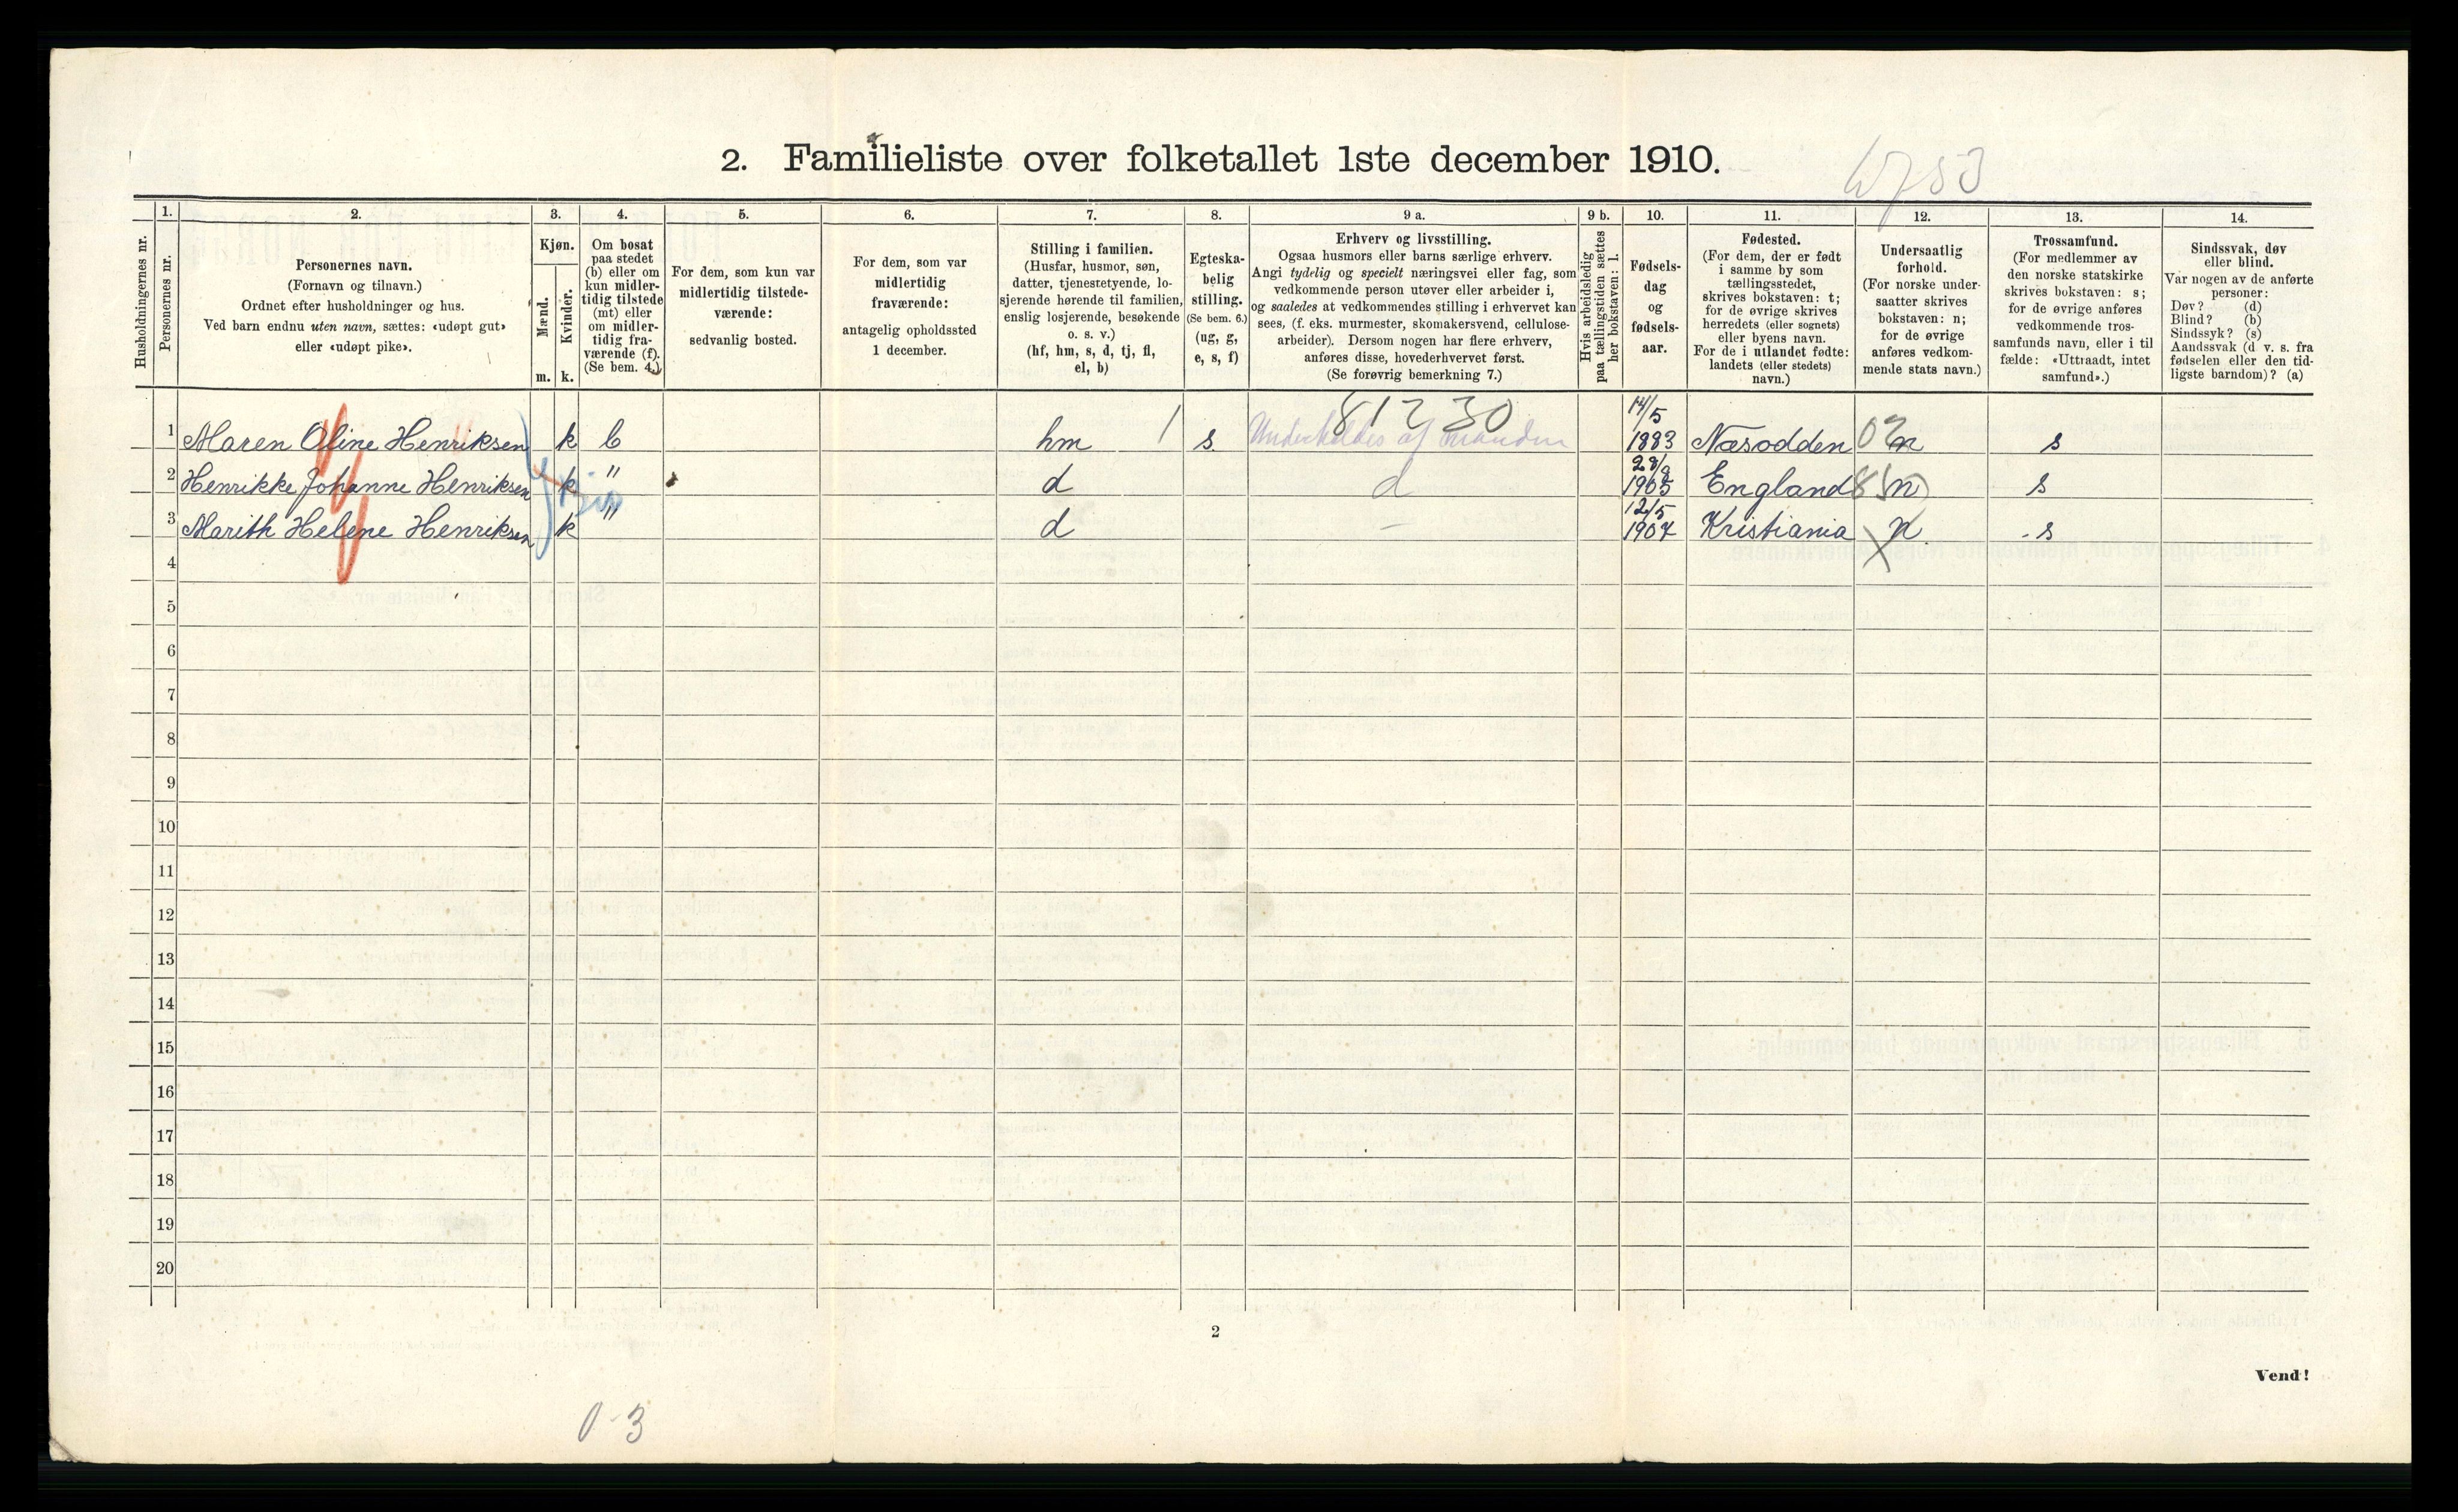 2. Familieliste over folketallet 1ste december 1910.
6753
Husholdningernes nr.
1.
Personernes nr.
2.
Personernes navn.
(Fornavn og tilnavn.)
Ordnet efter husholdninger og hus.
Ved barn endnu uten navn, sættes: «udøpt gut»
eller «udøpt pike».
3.
Kjøn.
Mænd.
Kvinder.
m. k.
4.
Om bosat
paa stedet
(b) eller om
kun midler-
tidig tilstede
(mt) eller
om midler-
tidig fra-
værende (f).
(Se bem. 4.)
5.
For dem, som kun var
midlertidig tilstede-
værende:
sedvanlig bosted.
6.
For dem, som var
midlertidig
fraværende:
antagelig opholdssted
1 december.
7.
Stilling i familien.
(Husfar, husmor, søn,
datter, tjenestetyende, lo-
sjerende hørende til familien,
enslig losjerende, besøkende
o. s. v.)
(hf, hm, s, d, tj, fl,
el, b)
8.
Egteska-
belig
stilling.
(Se bem. 6.)
(ug, g,
e, s, f)
9 a.
Erhverv og livsstilling.
Ogsaa husmors eller barns særlige erhverv.
Angi tydelig og specielt næringsvei eller fag, som
vedkommende person utøver eller arbeider i,
og saaledes at vedkommendes stilling i erhvervet kan
sees, (f. eks. murmester, skomakersvend, cellulose-
arbeider). Dersom nogen har flere erhverv,
anføres disse, hovederhvervet først.
(Se forøvrig bemerkning 7.)
9 b.
Hvis arbeidsledig
paa tællingstiden sættes
her bokstaven: l.
10.
Fødsels-
dag
og
fødsels-
aar.
11.
Fødested.
(For dem, der er født
i samme by som
tællingsstedet,
skrives bokstaven: t;
for de øvrige skrives
herredets (eller sognets)
eller byens navn.
For de i utlandet fødte:
landets (eller stedets)
navn.)
12.
Undersaatlig
forhold.
(For norske under-
saatter skrives
bokstaven: n;
for de øvrige
anføres vedkom-
mende stats navn.)
13.
Trossamfund.
(For medlemmer av
den norske statskirke
skrives bokstaven: s;
for de øvrige anføres
vedkommende tros-
samfunds navn, eller i til
fælde: «Uttraadt, intet
samfund».)
14.
Sindssvak, døv
eller blind.
Var nogen av de anførte
personer:
Døv? (d)
Blind? (b)
Sindssyk? (s)
Aandssvak (d v. s. fra
fødselen eller den tid-
ligste barndom)? (a)
1 Maren Oline Henriksen k b hm 1 s. 81230 Underholdes af manden 14/5 1883 Næsodden 02 n s
2 Henrikke Johanne Henriksen k " d d 1905 England n s
3 Marith Helene Henriksen k " d – 12/5 1907 Kristiania n s
4
5
6
7
8
9
10
11
12
13
14
15
16
17
18
19
20
2
Vend!
0-3